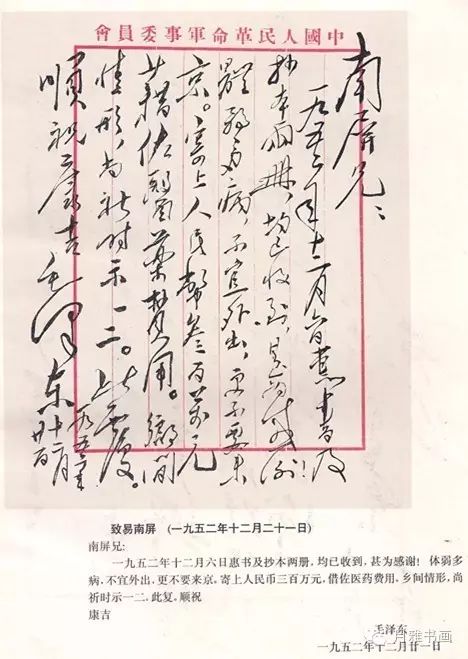 中國人民革命軍事委員會
南屏兄：
一九五二年十二月六日惠书及
抄本两册，均已收到，甚为感谢！
體弱多病，不宜外出，更不要来
京。寄上人民幣叁百萬元
，藉佐醫藥費用。鄉間
情形，尚祈时示一二。此复。
順祝 康吉 毛澤东
一九五二年
十二月
廿一日
致易南屏 (一九五二年十二月二十一日)
南屏兄:
一九五二年十二月六日惠书及抄本两册，均已收到，甚为感谢！体弱多
病，不宜外出，更不要来京，寄上人民币三百万元，借佐医药费用，乡间情形，尚
祈时示一二，此复，顺祝
康吉
毛泽东
一九五二年十二月廿一日
月雅书画